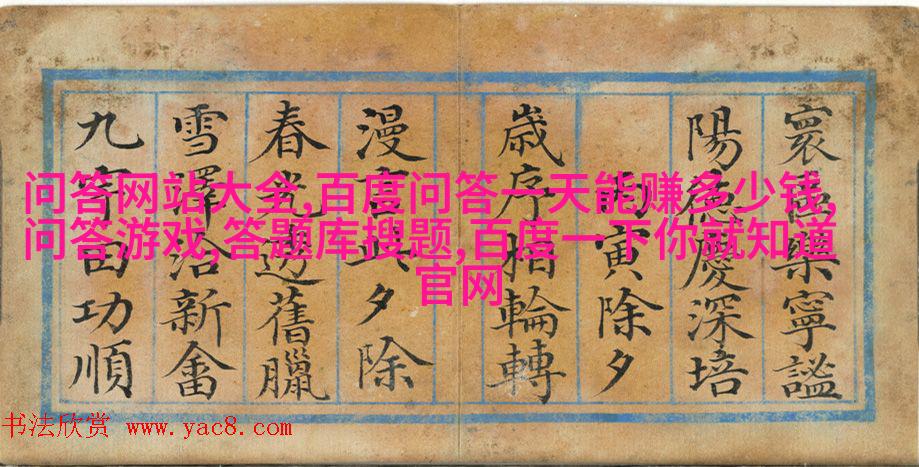 问答网站大全,百度问答一天能赚多少钱,
问答游戏,答题库搜题,百度一下你就知道
官网
寰區樂寧謐
陽慶深培
丙寅除夕
歲序指輪轉
漫言此夕除
春光邊舊臘
雪澤洽新畬
九田功順
书法欣赏 www.yac8.com